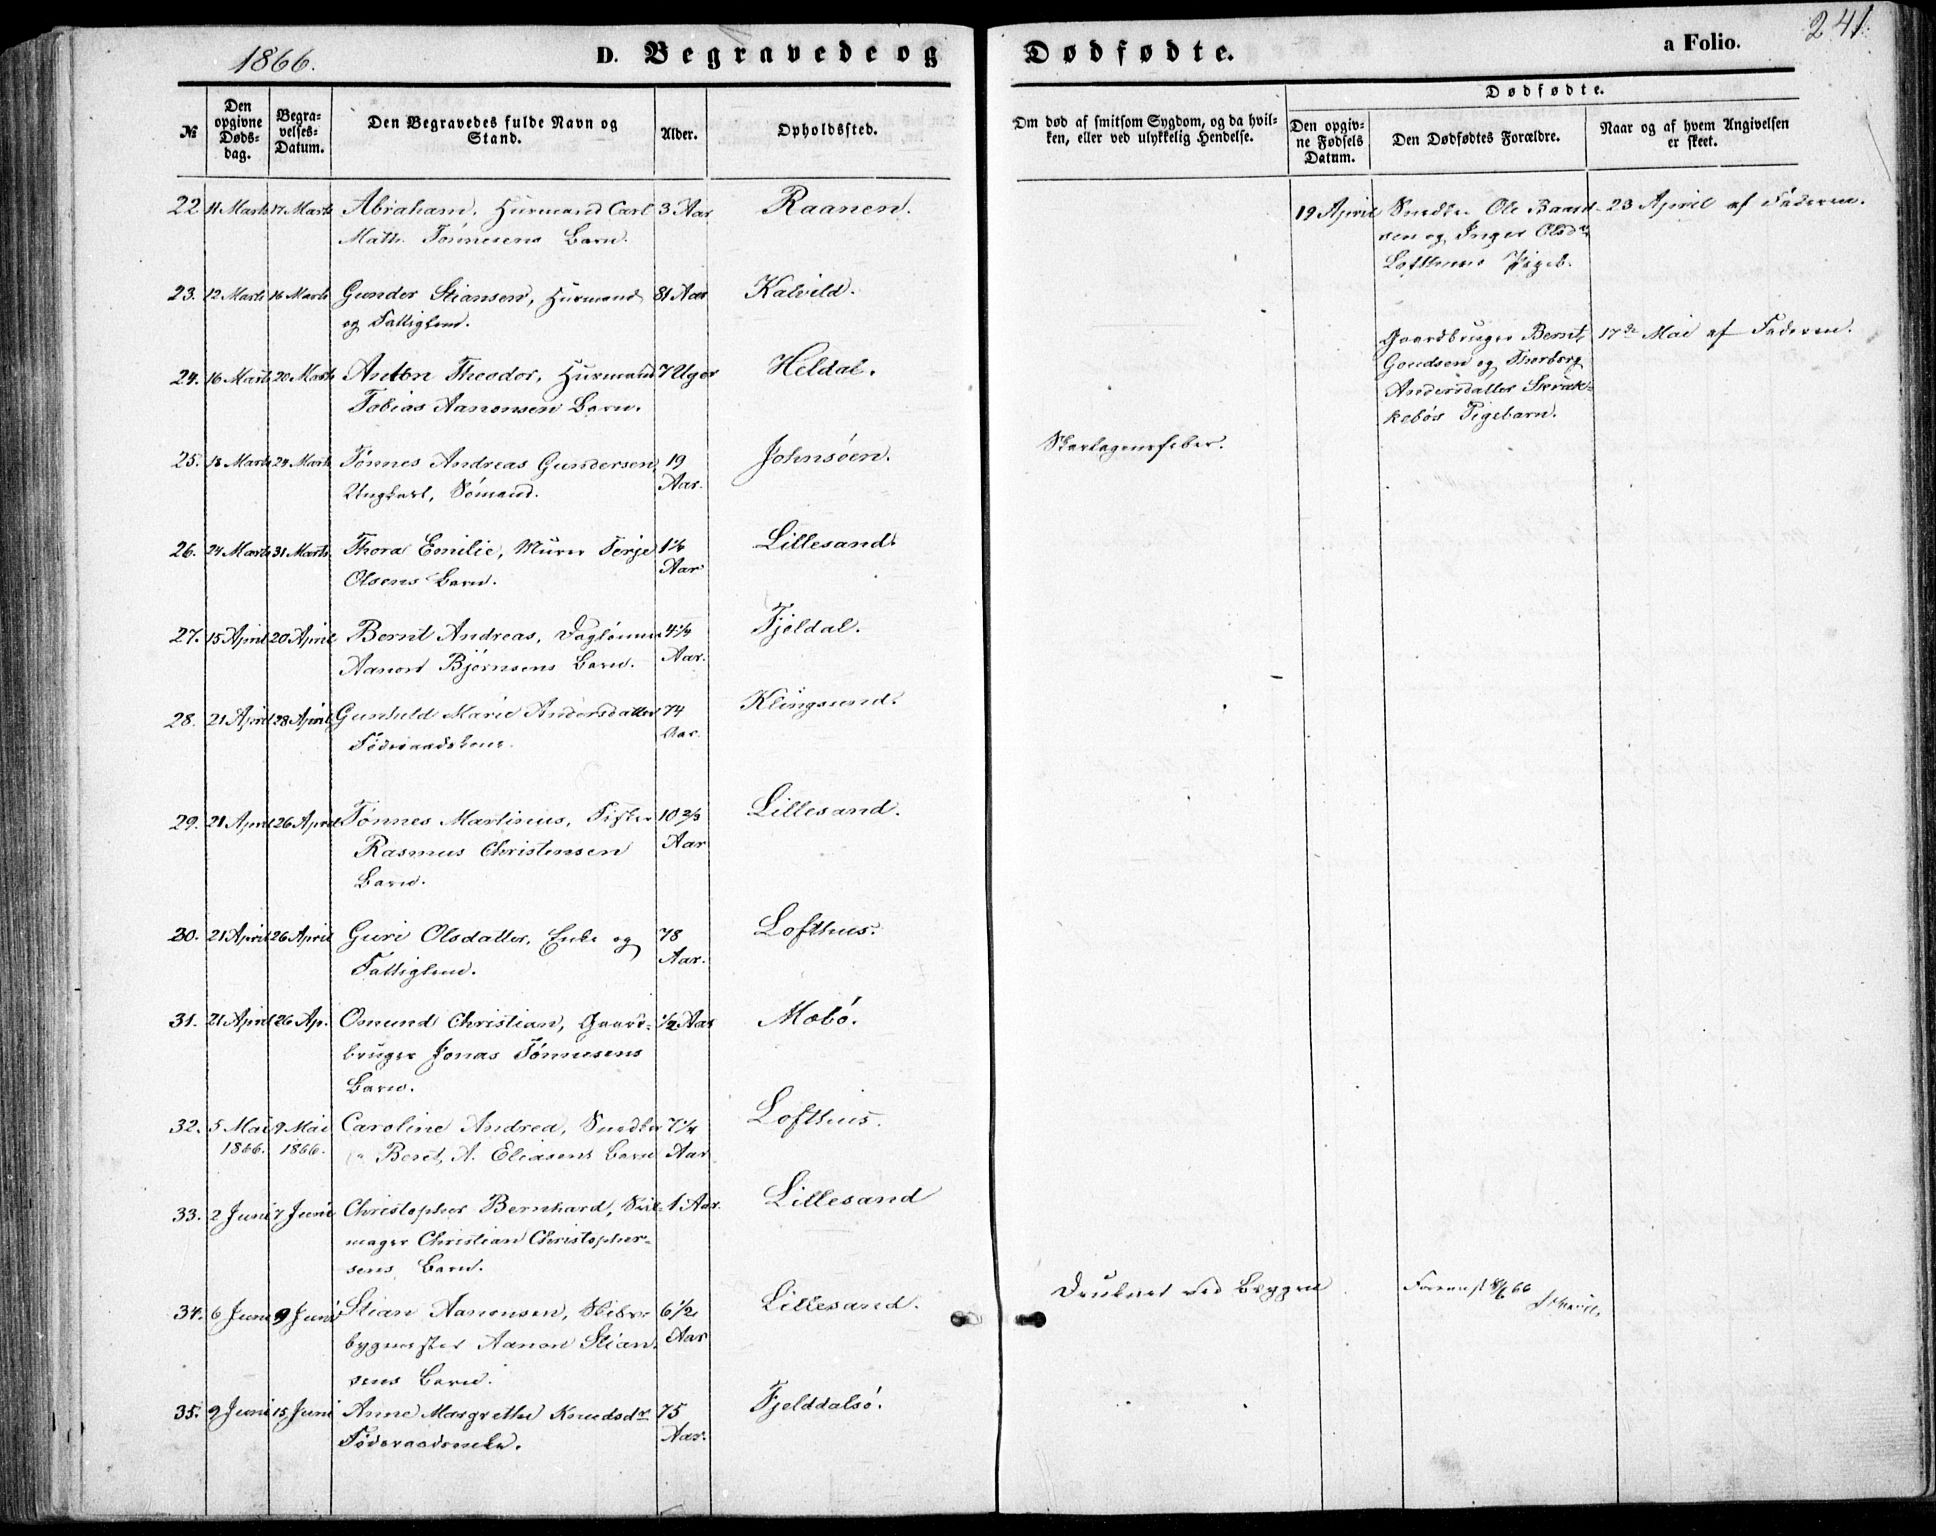 1866.
D. Begravede og Dødfødte.
a Folio.
241.
№
Den opgivne Dødsdag.
Begravelses-Datum.
Den Begravedes fulde Navn og Stand.
Alder.
Opholdssted.
Om død af smitsom Sygdom, og da hvilken, eller ved ulykkelig Hendelse.
Dødfødte.
Den opgivne Fødsels Datum.
Den Dødfødtes Forældre.
Naar og af hvem Angivelsen er skeet.
22. 11 Marts 17 Marts Abraham, Husmand Carl 3 Aar Raanen.
Math. Tönnesens Barn.
19 April Snedker Ole Baard- 23 April af Faderen.
sen og Inger Olsdr
Lofthuus Pigeb.
23. 12 Marts 16 Marts Gunder Stiansen, Husmand 81 Aar Kalvild.
og Fattiglem.
Gaardbruger Bernt 17de Mai af Faderen.
Goudsen og Thorborg
Andersdatter Skræk-
kebös Pigebarn.
24. 16 Marts 20 Marts Anton Theodor, Husmand 7 Uger Heldal.
Tobias Aanonsen Barn.
25. 18 Marts 24 Marts Tönnes Andreas Gundersen, 19 Johnsöen. Skarlagensfeber.
Ungkarl, Sömand. Aar.
26. 24 Marts 31 Marts Thora Emilie, Murer Terje 1 1/6 Lillesand.
Olsens Barn. Aar
27. 15 April 20 April Bernt Andreas, Daglönner 4 1/4 Fjeldal.
Aanon Björnsens Barn. Aar.
28. 21 April 28 April Gunhild Marie Andersdatter 74 Klingsund.
Föderaadskone. Aar.
29. 21 April 26 April Tönnes Martinus, Fisker 10 2/3 Lillesand.
Rasmus Christensen Aar
Barn.
30. 21 April 26 April Guri Olsdatter, Enke og 78 Lofthus.
Fattiglem. Aar.
31. 21 April 26 Ap. Osmund Christian, Gaard- 1/2 Aar Mæbö.
bruger Jonas Tönnesens
Barn.
32. 5 Mai 9 Mai Caroline Andrea, Snedker 7 1/4 Lofthus.
1866. 1866. Beret, A. Eliasens Barn Aar
33. 2 Juni 7 Juni Christopher Bernhard, Seil- 1 Aar. Lillesand
mager Christian Christopher-
sens Barn.
34. 6 Juni 9 Juni Stian Aanonsen, Skibs- 6 1/2 Lillesand. Druknet ved Bryggen
bygmester Aanon Stian- Aar
sens Barn.
35. 9 Juni 15 Juni Anne Margrethe Knudsdr 75 Fjelddalsö.
Föderaadsenke. Aar.